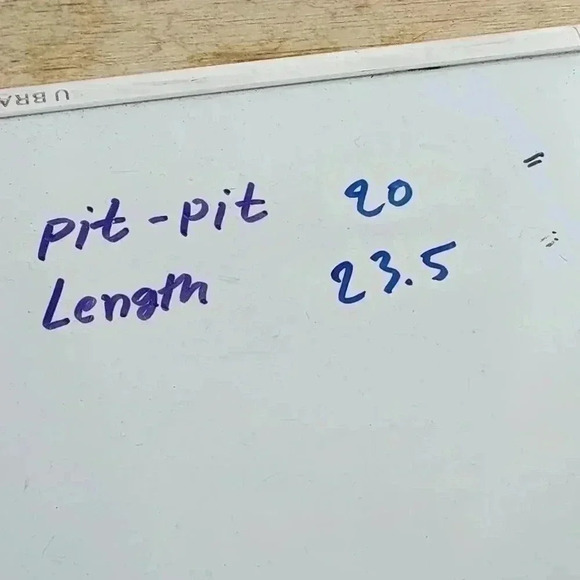 U BRA
pit-pit 20 "
Length 23.5 "